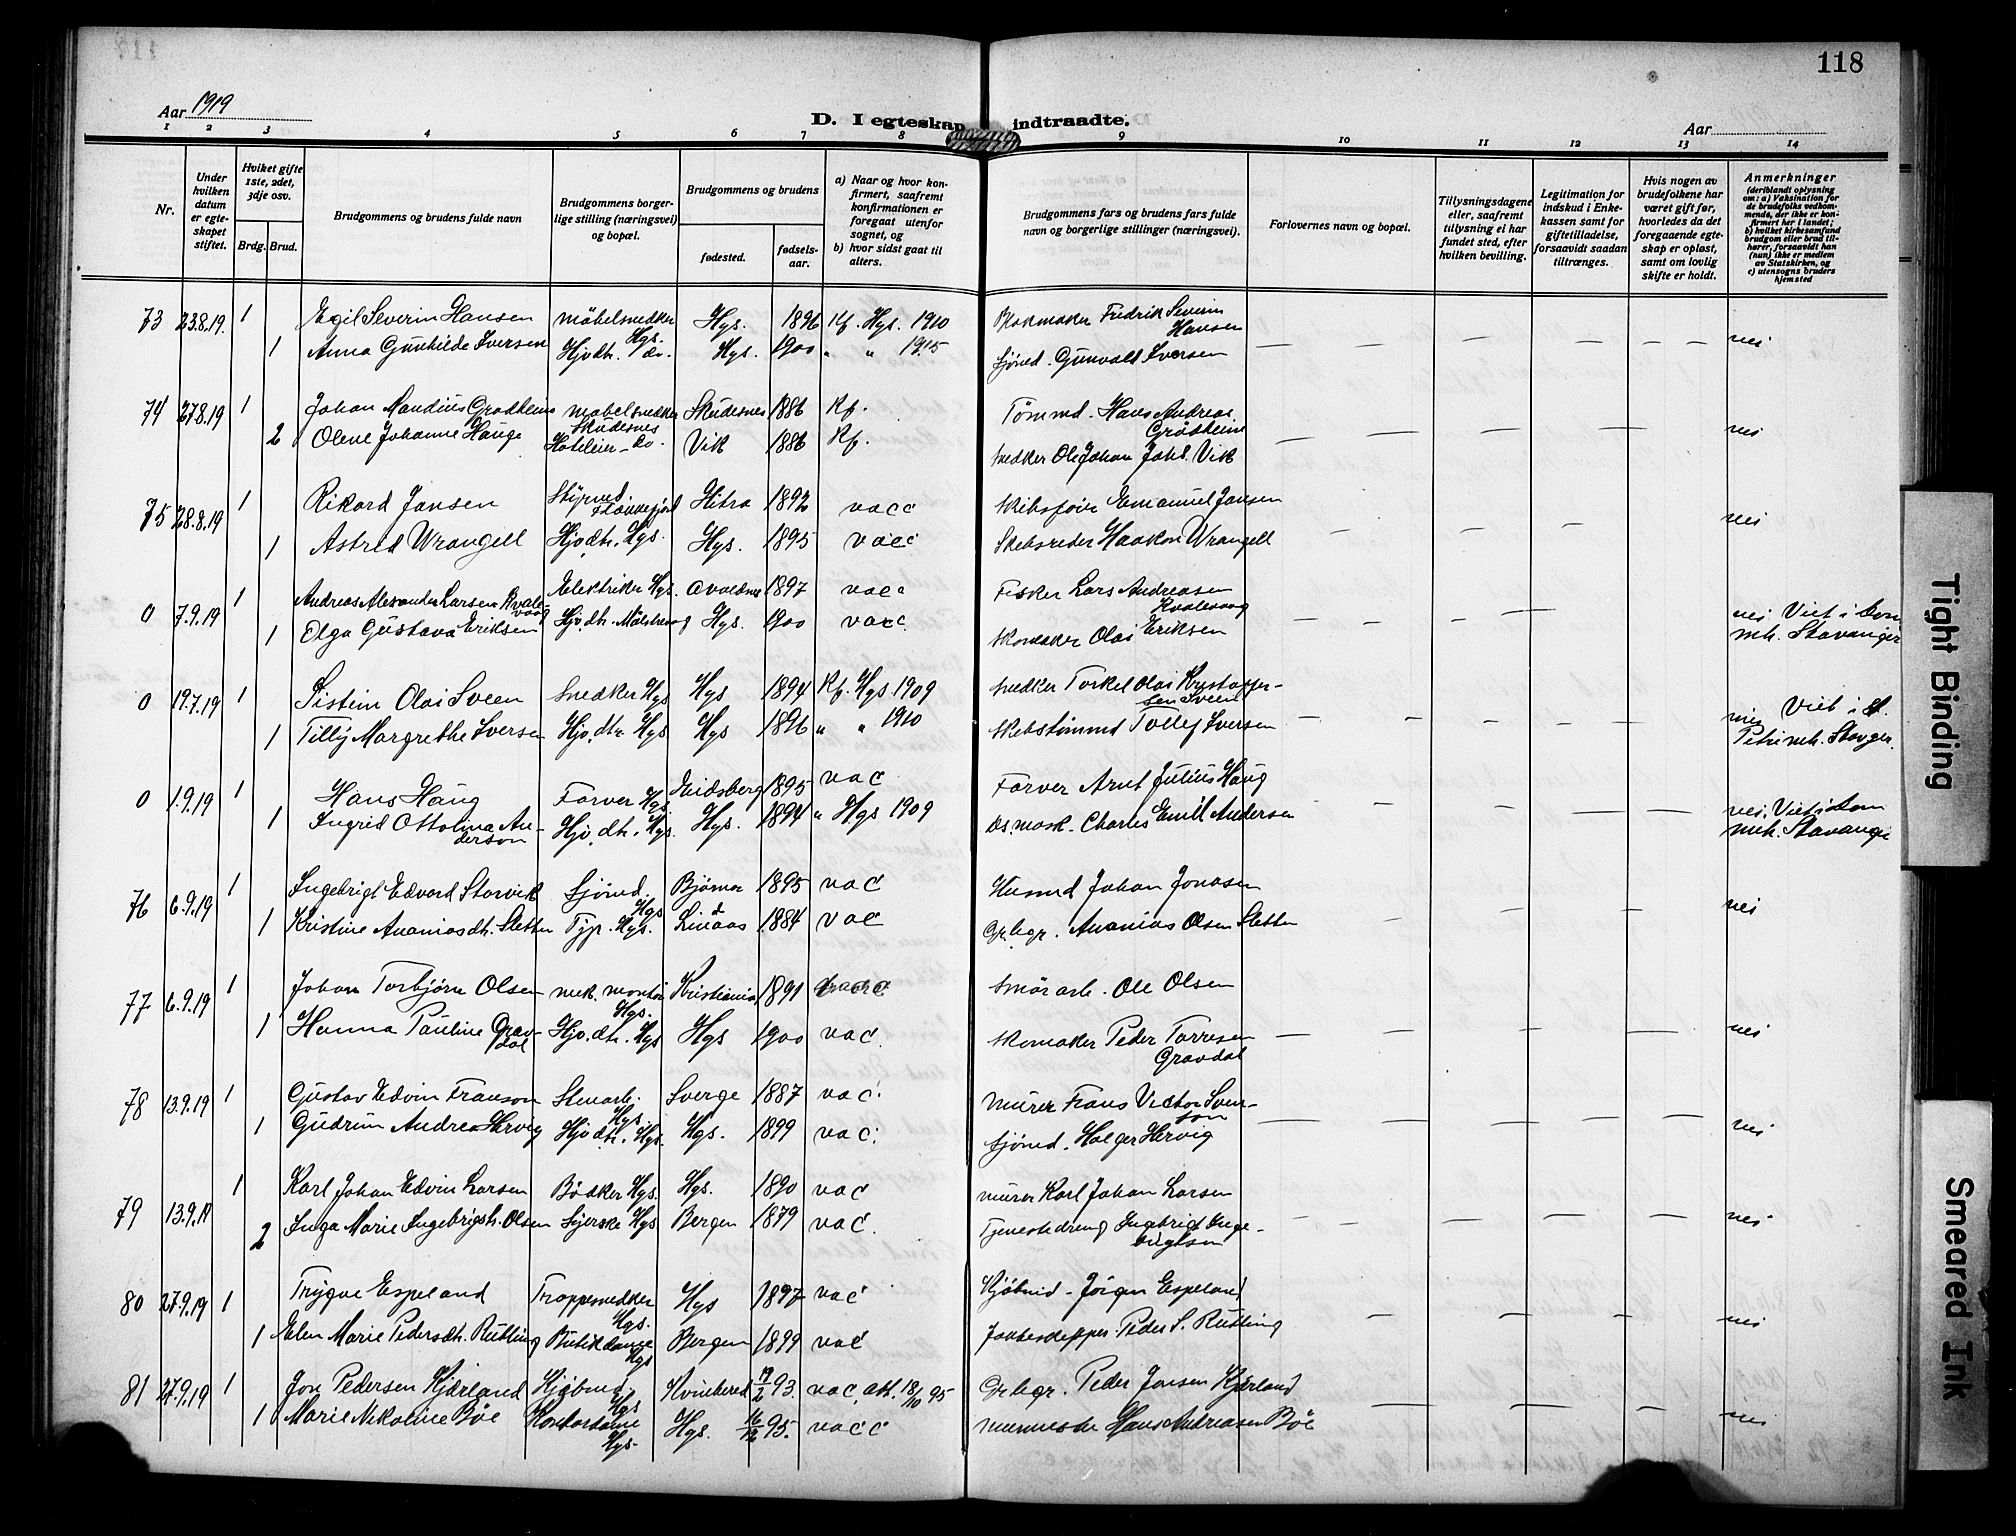 118
Aar 1919
D. I egteskap indtraadte.
Aar
1 2 3 4 5 6 7 8 9 10 11 12 13 14
Nr.
Under hvilken datum er egteskapet stiftet.
Hvilket gifte 1ste, 2det, 3dje osv.
Brdg. Brud.
Brudgommens og brudens fulde navn
Brudgommens borgerlige stilling (næringsvei) og bopæl.
Brudgommens og brudens
fødested.
fødselsaar.
a) Naar og hvor konfirmert, saafremt konfirmationen er foregaat utenfor sognet, og
b) hvor sidst gaat til alters.
Brudgommens fars og brudens fars fulde navn og borgerlige stillinger (næringsvei).
Forlovernes navn og bopæl.
Tillysningsdagene eller, saafremt tillysning ei har fundet sted, efter hvilken bevilling.
Legitimation for indskud i Enkekassen samt for giftetilladelse, forsaavidt saadan tiltrænges.
Hvis nogen av brudefolkene har været gift før, hvorledes da det foregaaende egteskap er opløst, samt om lovlig skifte er holdt.
Anmerkninger
(deriblandt oplysning om: a) Vaksination for de brudefolks vedkommende, der ikke er konfirmert her i landet; b) hvilket kirkesamfund brudgom eller brud tilhører, forsaavidt han (hun) ikke er medlem av Statskirken, og c) utensogns bruders hjemsted
73 23.8.19. 1 Egil Severin Hansen Møbelsnedker Hgs. Hgs. 1896 Kf. Hgs. 1910 Fredrik Severin Hansen
1 Anna Gunhilde Iversen Hjv.dtr. do. Hgs. 1900 " " 1915 Sjømd. Gunvald Iversen — — — — — — nei
74 27.8.19 1 Johan Mandius Grødheim Møbelsnedker Skudesnes Skudesnes 1886 Kf. Tømmd. Hans Andreas Grødheim
2 Olene Johanne Hauge Hoteleier do. Vik 1886 Kf. Snedker Ole Johan Johs. Vik — — — — — nei
75 28.8.19 1 Rikard Jansen Styrmd. Hitra 1892 vacc Skibsfører Emanuel Jansen
1 Astrid Wrangell Hjv.dtr. Hgs. Hgs. 1895 vacc Skibsreder Haakon Wrangell — — — — nei
0 7.9.19 1 Andreas Alexander Larsen Kvalevaag Elektriker Hgs. Avaldsnes 1897 vacc Fisker Lars Andreasen Kvalevaag
1 Olga Gustava Eriksen Hjv.dtr. Hgs. 1900 vacc Skomaker Olai Eriksen — — — — nei Viet i Dom mh. Stavanger
0 19.7.19 1 Sistein Olai Sveen Snedker Hgs Hgs 1894 Kf. Hgs. 1909 Snedker Torkel Olai Kristoffersen Sveen
1 Tilly Margrethe Iversen Hjv.dtr. Hgs Hgs 1896 " " 1910 Skibstømmd Tollef Iversen — — — — — — nei Viet i St. Petri mh. Stavger.
0 1.9.19 1 Hans Haug Farver Hgs Eidsberg 1895 vac Farver Arnt Julius Haug
1 Ingrid Ottolina Anderson Hjv.dtr. Hgs. Hgs. 1894 " Hgs 1909 Charles Emil Andersen — — — — — nei. Viet i Dom mh. Stavanger
76 6.9.19 1 Ingebrigt Edvard Storvik Sjømd. Hgs Bjørnør 1895 vac Husmd Johan Jonasen
1 Kristine Ananiasdtr. Sletten Typ. Hgs. Lindaas 1884 vac Gr.bgr. Ananias Olsen Sletten — — — — nei
77 6.9.19 1 Johan Torbjørn Olsen mek. montør Hgs. Kristiania 1891 vacc Ole Olsen
1 Hanna Pauline Gravdal Hjv.dtr. Hgs Hgs 1900 vac. Skomaker Peder Torresen Gravdal — — — — — — nei
78 13.9.19 1 Gustav Edvin Franson Stenarb. Hgs. Sverge 1887 vac. Murer Frans Victor Svenson
1 Gudrun Andrea Hervig Hjv.dtr. Hgs. Hgs. 1899 vac. Sjømd. Holger Hervig — — — — — — nei
79 13.9.19 1 Karl Johan Edvin Larsen Bødker Hgs. Hgs. 1890 vac Murer Karl Johan Larsen
2 Inga Marie Ingebrigtdtr. Olsen Syerske Hgs Bergen 1879 vac. Tjenestedreng Ingebrigt Ingebrigtsen — — — — — — nei
80 27.9.19 1 Trygve Espeland Trappesnedker Hgs. Hgs 1897 vac Kjøbmd. Jørgen Espeland
1 Elen Marie Pedersdtr. Rutling Butikdame Hgs Bergen 1899 vac Peder S. Rutling — — — — — nei
81 27.9.19 1 Jon Pedersen Kjærland Kjøbmd Hgs Kvinherred 17/2 93. vac. att. 18/10 95 Gr.bgr. Peder Jonsen Kjærland
1 Marie Nikoline Bøe Kontordame Hgs. Hgs. 16/12 95. vacc Hans Andreasen Bøe — — — — nei
Tight Binding
Smeared Ink